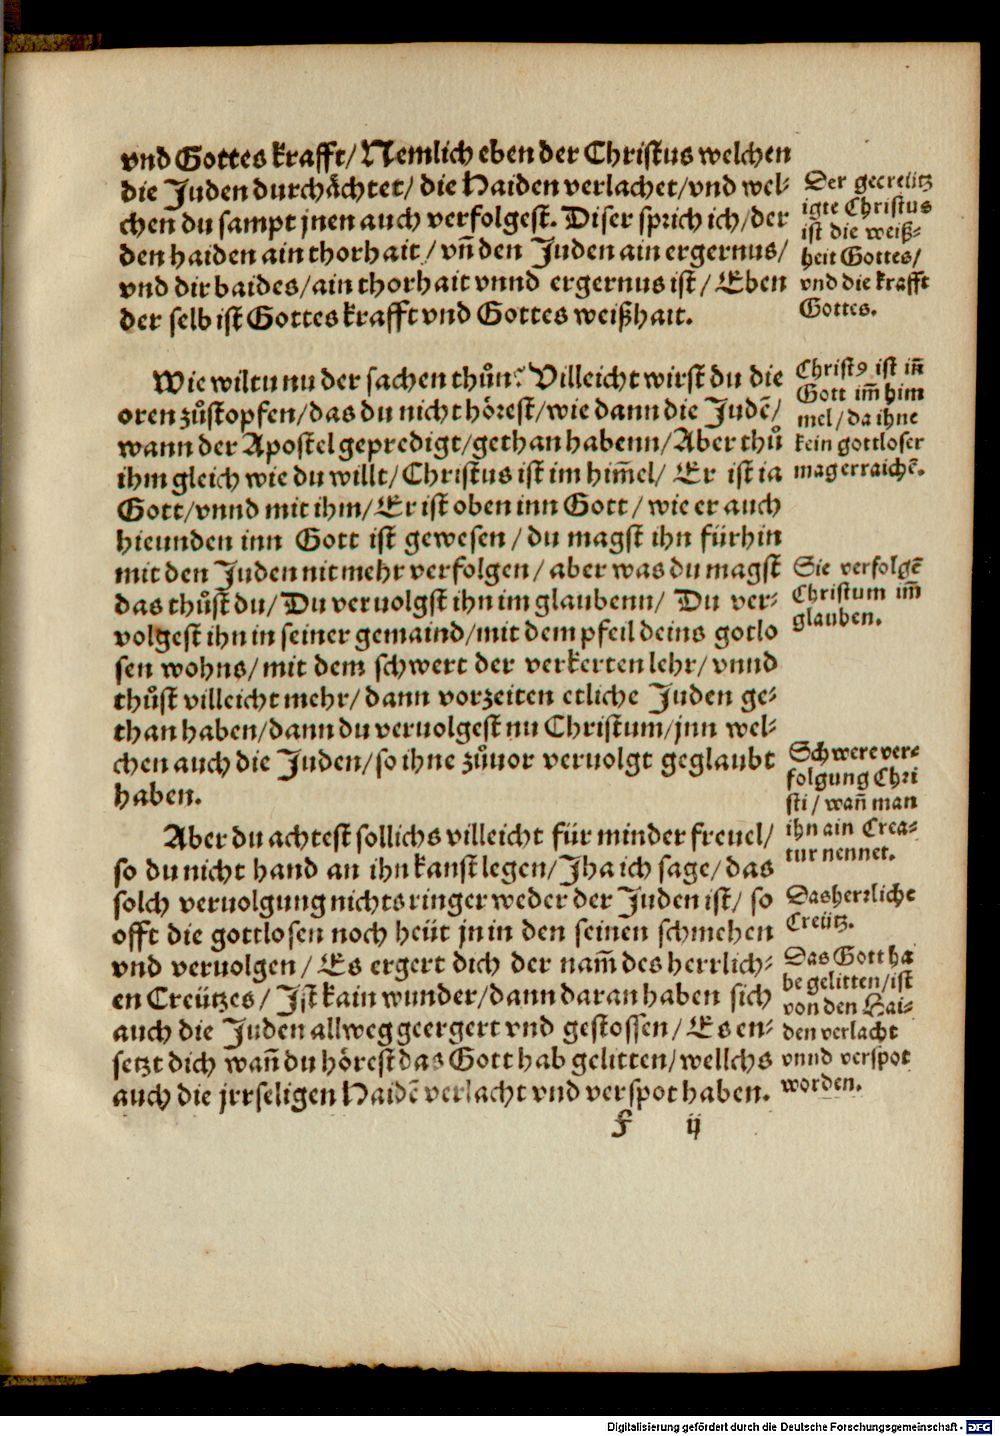 vnd Gottes krafft/ Nemlich eben der Christus welchen
die Juden durchächtet/ die Haiden verlachet/ vnd wel-
chen du sampt jnen auch verfolgest. Diser sprich ich/ der
den haiden ain thorhait/ vn̄ den Juden ain ergernus/
vnd dir baides/ ain thorhait vnnd ergernus ist/ Eben
der selb ist Gottes krafft vnd Gottes weißhait.
Der gecreütz
igte Christus
ist die weiß-
heit Gottes/
vnd die krafft
Gottes.
Wie wiltu nu der sachen thůn? Villeicht wirst du die
oren zůstopfen/ das du nicht hörest/ wie dann die Judē/
wann der Apostel gepredigt/ gethan habenn/ Aber thů
ihm gleich wie du willt/ Christus ist im him̄el/ Er ist ia
Gott/ vnnd mit ihm/ Er ist oben inn Gott/ wie er auch
hieunden inn Gott ist gewesen/ du magst ihn fürhin
mit den Juden nit mehr verfolgen/ aber was du magst
das thůst du/ Du veruolgst ihn im glaubenn/ Du ver-
volgest ihn in seiner gemaind/ mit dem pfeil deins gotlo
sen wohns/ mit dem schwert der verkerten lehr/ vnnd
thůst villeicht mehr/ dann vorzeiten etliche Juden ge-
than haben/ dann du veruolgest nu Christum/ jnn wel-
chen auch die Juden/ so ihne zůuor veruolgt geglaubt
haben.
Christꝰ ist in̄
Gott im̄ him
mel/ da ihne
kein gottloser
mag erraichē.
Sie verfolgē
Christum im̄
glauben.
Schwere ver-
folgung Chri
sti/ wan̄ man
ihn ain Crea-
tur nennet.
Aber du achtest sollichs villeicht für minder freuel/
so du nicht hand an ihn kanst legen/ Jha ich sage/ das
solch veruolgung nichts ringer weder der Juden ist/ so
offt die gottlosen noch heüt jn in den seinen schmehen
vnd veruolgen/ Es ergert dich der nam̄ des herrlich-
en Creützes/ Jst kain wunder/ dann daran haben sich
auch die Juden allweg geergert vnd gestossen/ Es en-
setzt dich wan̄ du hörest das Gott hab gelitten/ wellchs
auch die jrrseligen Haidē verlacht vnd verspot haben.
Das herrliche
Creütz.
Das Gott ha
be gelitten/ ist
von den Hai-
den verlacht
vnnd verspot
worden.
F ij
Digitalisierung gefördert durch die Deutsche Forschungsgemeinschaft - DFG